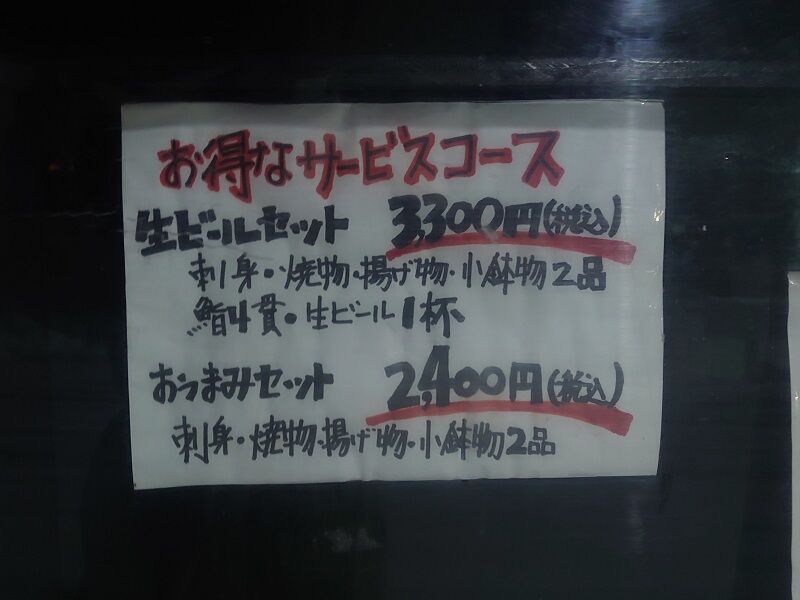 お得なサービスコース
生ビールセット 3,300円(税込)
刺身・焼物・揚げ物・小鉢物2品
鮨4貫・生ビール1杯
おつまみセット 2,400円(税込)
刺身・焼物・揚げ物・小鉢物2品